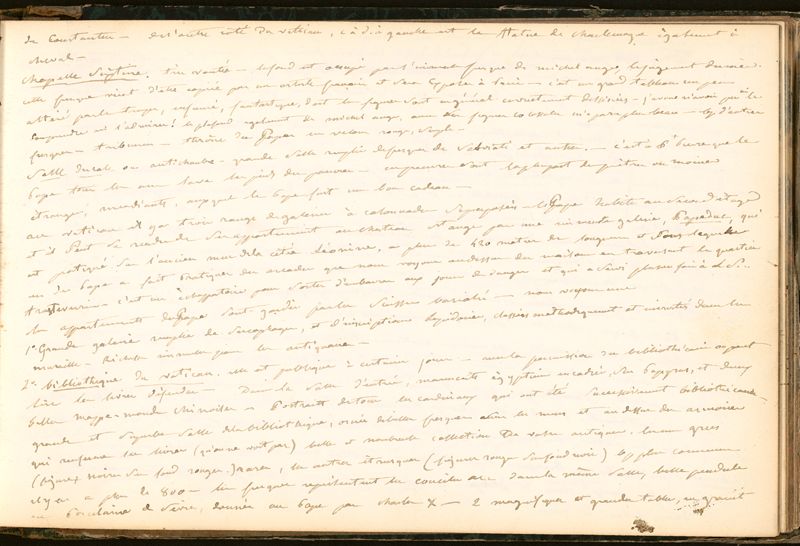 de Constantin — de l'autre côté du vestibule, c à d à gauche est la statue de Charlemagne également à
cheval —
Chapelle Sixtine. très vantée — le fond est occupé par l'immense fresque de michel ange le jugement dernier.
cette fresque vient d'être copiée par un artiste français et sera exposée à Paris — c'est un grand tableau un peu
altéré par le temps, enfumé, fantastique, dont les figures sont en général correctement dessinées — j'avoue n'avoir pu le
comprendre ni l'admirer! le plafond également de michel ange, avec des figures colossales m'a paru plus beau — il y a d'autres
fresques — tribunes — thrône du Pape en velours rouge, simple —
Salle ducale ou antichambre — grande salle remplie de fresques de et autres. — c'est à que le
Pape tous les ans lave les pieds des pauvres — ce sont la plupart de prêtres ou moines
étrangers, mendiants, auxquels le Pape fait un bon cadeau —
au vatican il y a trois rangs de galeries à colonnades superposées — le Pape habite au second étage
et il peut se rendre de ses appartements au chateau St ange par une immense galerie,
et pratiqué sur l'ancien mur de la cité Léonine, a plus de 420 mètres de longueur et sous laquelle
un des Papes a fait pratiquer des arcades que nous voyons au dessus des maisons en traversant le quartier
— c'est un échappatoire pour sortir d'embarras aux jours de danger et qui a servi plusieurs fois à L. S. —
les appartements du Pape sont gardés par les Suisses bariolés — nous voyons une
1° Grande galerie remplie de sarcophages, et d'inscriptions lapidaires, classées méthodiquement et incrustées dans les
murailles — Richesse immense pour les antiquaires —
2° bibliothèque du vatican. elle est publique à certains jours — avec la permission du bibliothécaire on peut
lire les livres défendus — Dans la salle d'entrée, manuscrits égyptiens encadrés, des papyrus, et deux
belles mappemondes chinoises — Portraits de tous les cardinaux qui ont été successivement bibliothécaires —
grande et superbe salle de la bibliothèque, ornée de belles fresques sur les murs et au dessus des armoires
qui renferment les livres (qu'on ne voit pas) belle et nombreuse collection de vases antiques. les uns grecs
(figures noires sur fond rouge) rares, les autres étrusques (figures rouges sur fond noir) plus communs
il y en a plus de 800 — les fresques représentent les conciles &c dans la même salle, belle pendule
en porcelaine de Sèvres, donnée au Pape par Charles X — 2 magnifiques et grandes tables, en granit